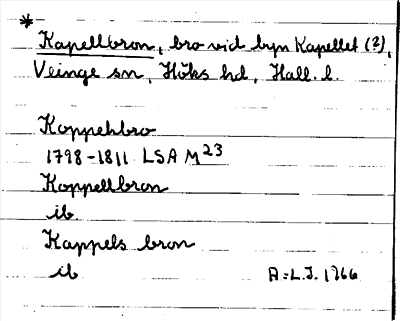 * Kapellbron, bro vid byn Kapellet (?),
Veinge sn, Höks hd, Hall. l.
Koppehbro
1798-1811 LSA M23
Koppellbron
ib.
Kappels bron
ib
A=L.J. 1966